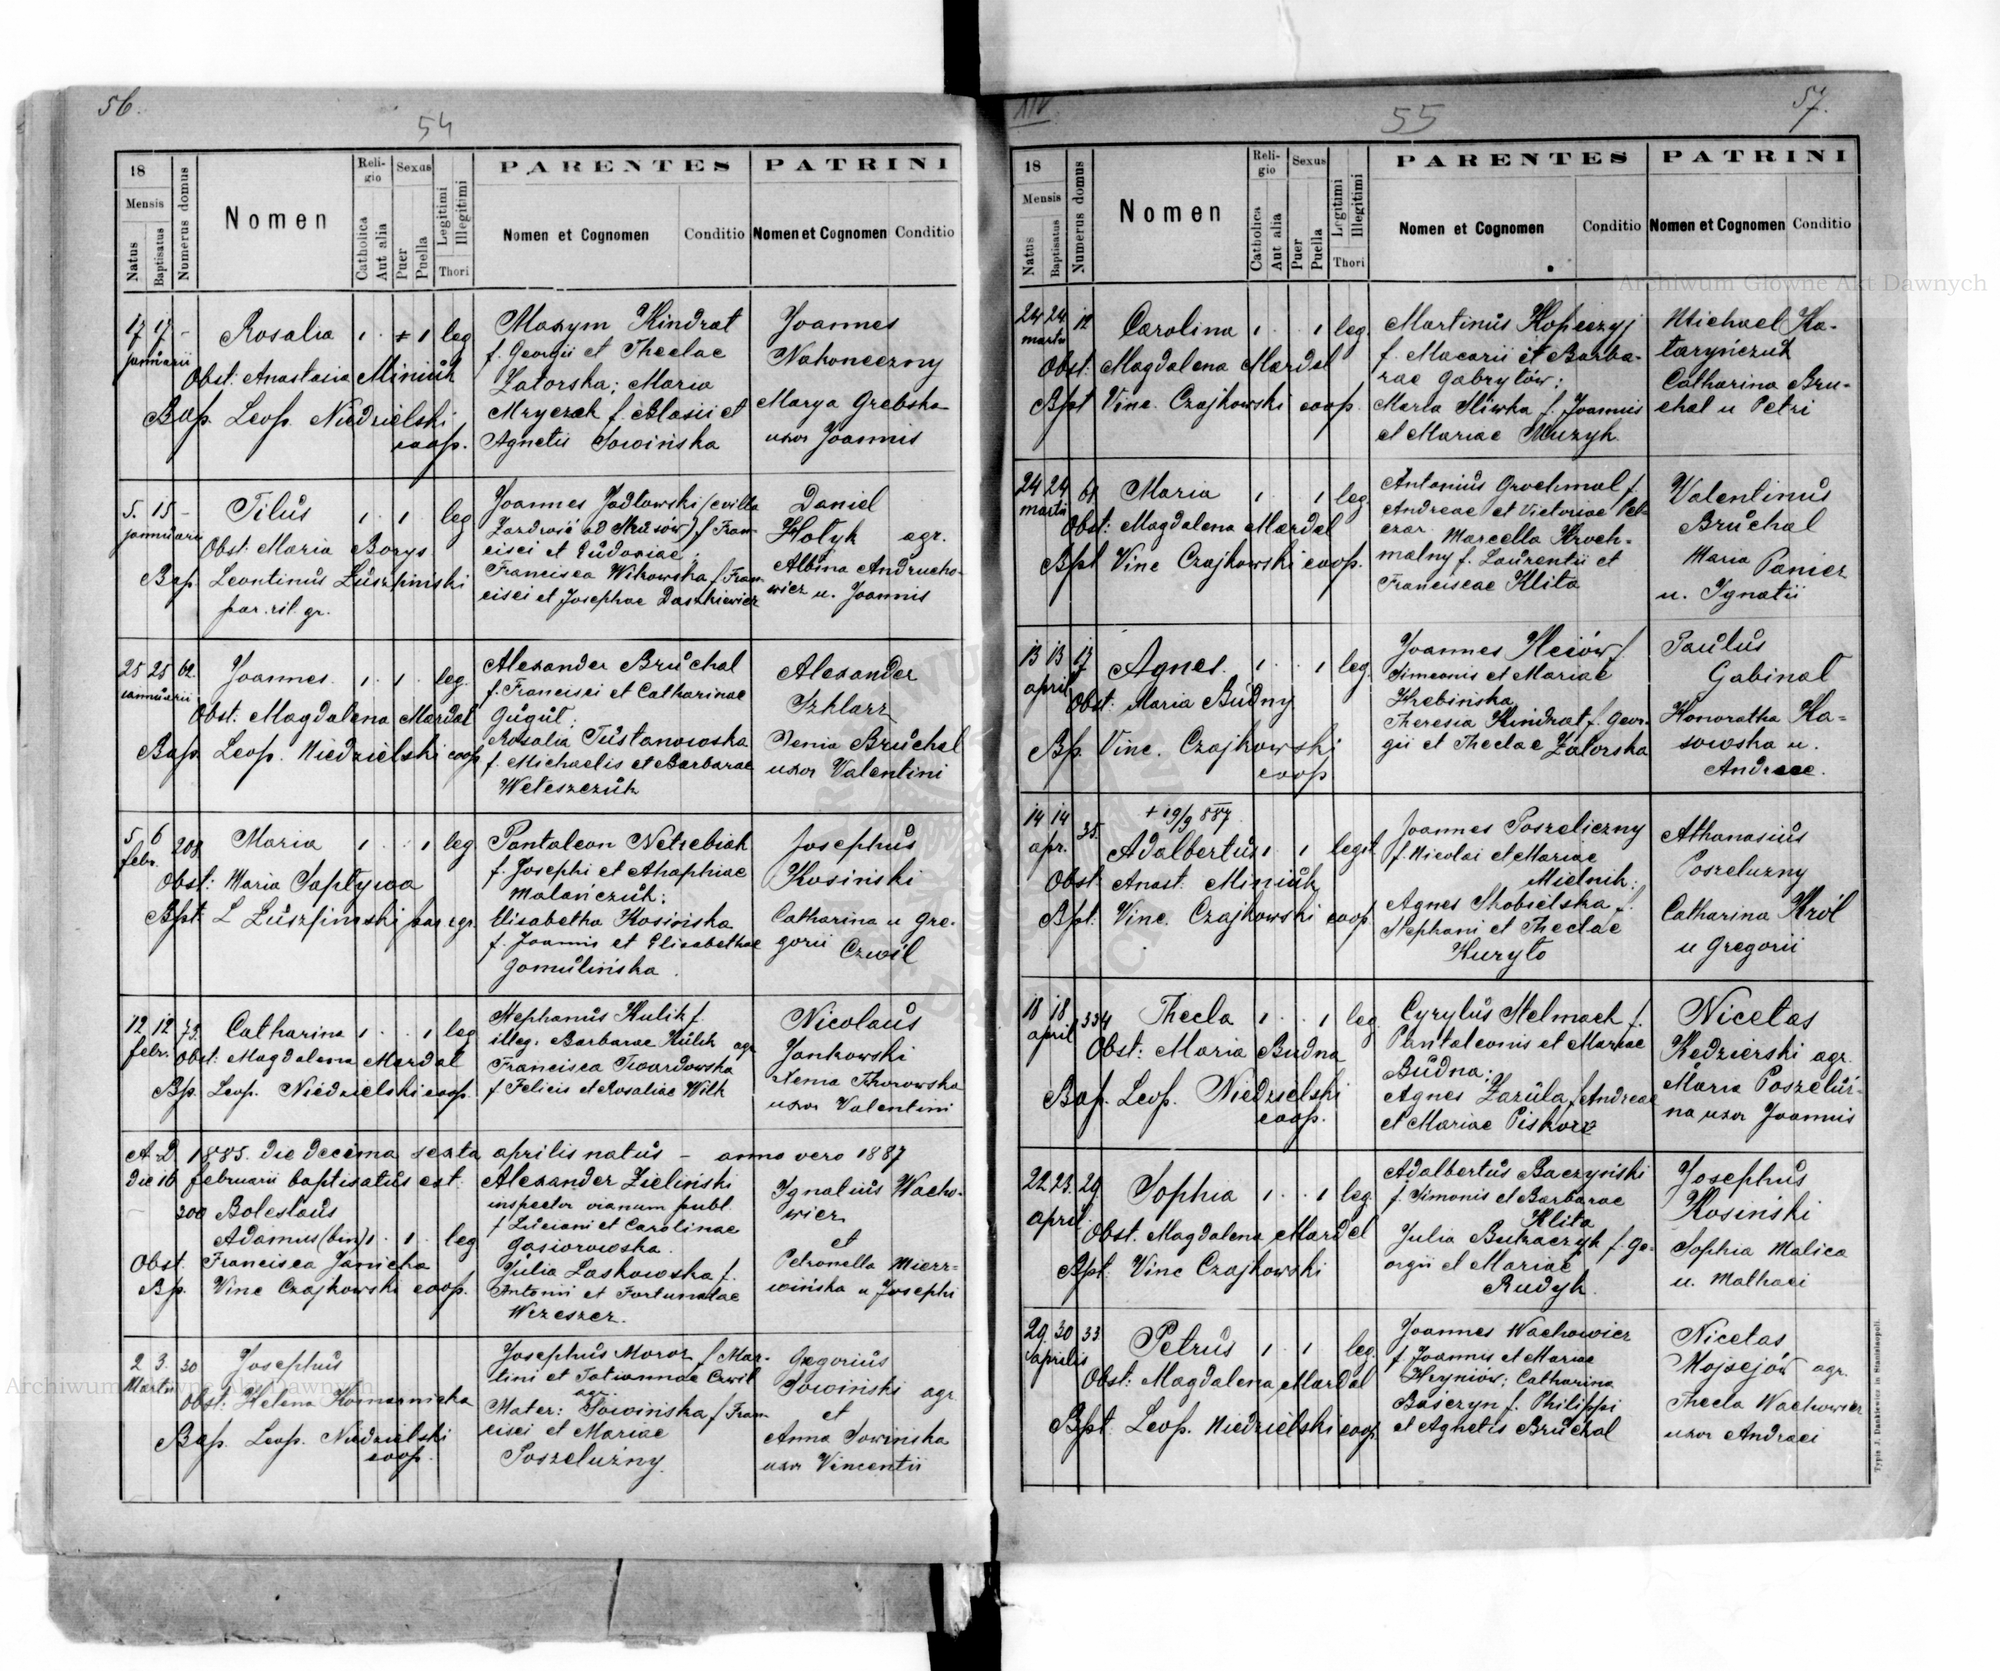 56.
54
18
Mensis
Natus
Baptisatus
Numerus domus
Nomen
Religio
Catholica
Aut alia
Sexus
Puer
Puella
Legitimi
Illegitimi
Thori
PARENTES
Nomen et Cognomen
Conditio
PATRINI
Nomen et Cognomen
Conditio
17 17 - Rosalia 1 1 leg
januarii
Obst: Anastasia Miniuk
Bap. Leop. Niedzielski
coop.
Maxym Kindrat
f. Georgii et Theclae
Zatorska; Maria
Mryczak f. Blasii et
Agnetis Sowińska
Joannes
Nakoneczny
Marya Grebska
uxor Joannis
5. 15 - Titus 1 1 leg
januarii
Obst. Maria Borys
Bap. Leontinus Łuszpiński
par. rit. gr.
Joannes Jadłowski (e villa
Zazdrość ad Strusow) f. Fran-
cisci et Eudoxiae;
Francisca Witowska f. Fran-
cisci et Josephae Daszkiewicz
Daniel
Hołyk agr.
Albina Andrucho-
wicz u. Joannis
25 25 62. Joannes. 1 1 leg.
januarii
Obst: Magdalena Mardal
Bap. Leop. Niedzielski coop
Alexander Bruchal
f. Francisci et Catharinae
Gugul;
Rosalia Tustanowska
f. Michaelis et Barbarae
Weteszczuk
Alexander
Szklarz
Xenia Bruchal
uxor Valentini
5 6 208 Maria 1 1 leg
febr.
Obst: Maria Sapływa
Bpt: L Łuszpinski par r gr.
Pantaleon Netrebiak
f. Josephi et Ahaphiae
Malańczuk;
Elisabetha Kosińska
f. Joannis et Elisabethae
Gomulińska.
Josephus
Kosiński
Catharina u Gre-
gorii Czwil
12 12 73. Catharina 1 1 leg
febr.
Obst: Magdalena Mardal
Bp. Leop. Niedzielski coop.
Stephanus Kulik f.
illeg. Barbarae Kulik agr
Francisca Twardowska
f. Felicis et Rosaliae Wilk
Nicolaus
Jankowski
Xenia Thorowska
uxor Valentini
A. D. 1885. die decima sexta aprilis natus - anno vero 1887
die 16 februarii baptisatus est.
200 Boleslaus
Adamus (bin) 1 1 leg
Obst. Francisca Janicka
Bp. Vinc Czajkowski coop.
Alexander Zieliński
inspector viarum publ.
f. Luciani et Carolinae
Gasiorowska.
Julia Laskowska f.
Antonii et Fortunatae
Wrzeszcz.
Ignatius Wacho-
wicz
et
Petronella Mierz-
wińska u Josephi
2 3. 30 Josephus
Martii
Obst: Helena Komarnicka
Bap. Leop. Niedzielski
coop.
Josephus Moroz f. Mar-
tini et Tatiannae Czwil
agr.
Mater: Sowińska f. Fran-
cisci et Mariae
Poszelużny.
Gregorius
Sowiński agr
et
Anna Sowińska
uxor Vincentii
XIV
57.
55
18
Mensis
Natus
Baptisatus
Numerus domus
Nomen
Religio
Catholica
Aut alia
Sexus
Puer
Puella
Legitimi
Illegitimi
Thori
PARENTES
Nomen et Cognomen
Conditio
PATRINI
Nomen et Cognomen
Conditio
24 24 12 Carolina 1 1 leg.
martii
Obst: Magdalena Mardal
Bpt Vinc. Czajkowski coop.
Martinus Kopieczyj
f. Macarii et Barba-
rae Gabrylów;
Maria Sliwka f. Joannis
et Mariae Muzyk.
Michael Ka-
taryńczuk
Catharina Bru-
chal u Petri
24 24 61 Maria 1 1 leg.
martii
Obst: Magdalena Mardal
Bpt Vinc Czajkowski coop.
Antonius Grochmal f.
Andreae et Victoriae Pel-
czar. Marcella Kroch-
malny f. Laurentii et
Franciscae Klita
Valentinus
Bruchal
Maria Panicz
u. Ignatii
13 13 17 Agnes. 1 1 leg
april
Obst: Maria Budny
Bp. Vinc. Czajkowski
coop
Joannes Kleiów f.
Simeonis et Mariae
Hrebińska
Theresia Kindrat f. Geor-
gii et Theclae Zatorska
Paulus
Gabinal
Honoratha Ka-
sowska u.
Andreae.
+ 19/9 887.
14 14 35. Adalbertus 1 1 legit
apr.
Obst Anast. Miniuk
Bpt: Vinc. Czajkowski coop
Joannes Poszeliczny
f. Nicolai et Mariae
Mielnik;
Agnes Skobielska f.
Stephani et Theclae
Kuryło
Athanasius
Poszelużny
Catharina Król
u Gregorii
18 18 334 Thecla 1 1 leg.
april
Obst: Maria Budna
Bap. Leop. Niedzielski
coop.
Cyrylus Stelmach f.
Pantaleonis et Mariae
Budna;
Agnes Zazula f. Andreae
et Mariae Piskorz
Nicetas
Kedzierski agr.
Maria Poszeluż-
na uxor Joannis
22 23. 29 Sophia 1 1 leg
april
Obst. Magdalena Mardal
Bpt: Vinc Czajkowski
Adalbertus Baczyński
f. Simonis et Barbarae
Klita
Julia Butraczyk f. Ge-
orgii et Mariae
Rudyk.
Josephus
Kosiński
Sophia Malica
u. Mathaei
29. 30 33 Petrus 1 1 leg.
aprilis
Obst: Magdalena Mardal
Bpt: Leop. Niedzielski coop
Joannes Wachowicz
f. Joannis et Mariae
Heyniów; Catharina
Baśczyn f. Philippi
et Agnetis Bruchal
Nicetas
Mojsejów agr.
Thecla Wachowicz
uxor Andreei
Typis J. Dankiewicz in Stanislopoli.
Archiwum Główne Akt Dawnych
Archiwum Główne Akt Dawnych